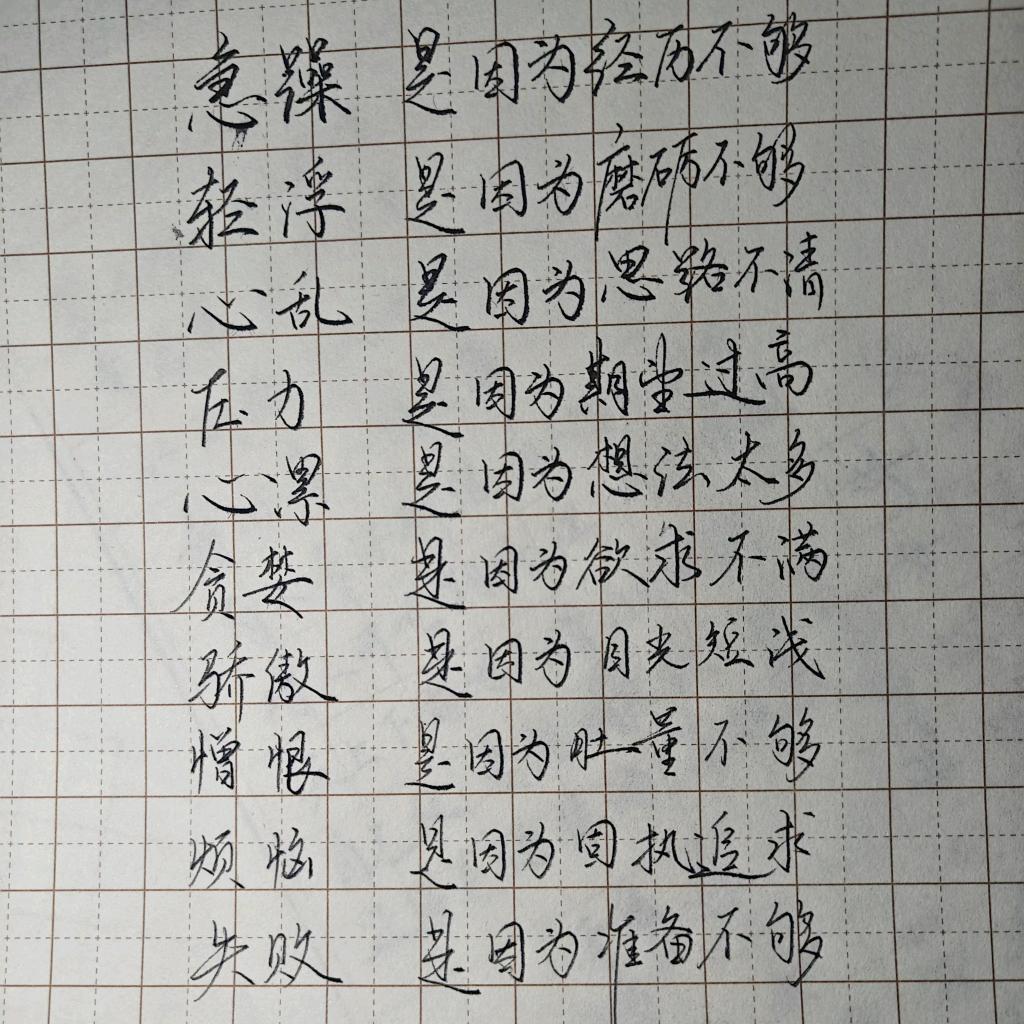 急躁 是因为经历不够
轻浮 是因为磨砺不够
心乱 是因为思路不清
压力 是因为期望过高
心累 是因为想法太多
贪婪 是因为欲求不满
骄傲 是因为目光短浅
憎恨 是因为肚量不够
烦恼 是因为固执追求
失败 是因为准备不够